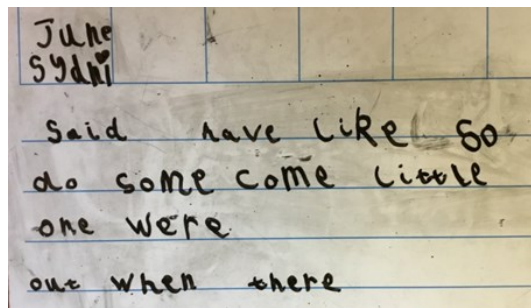 June
Sydni
Said have like so
do some come little
one were
out when there